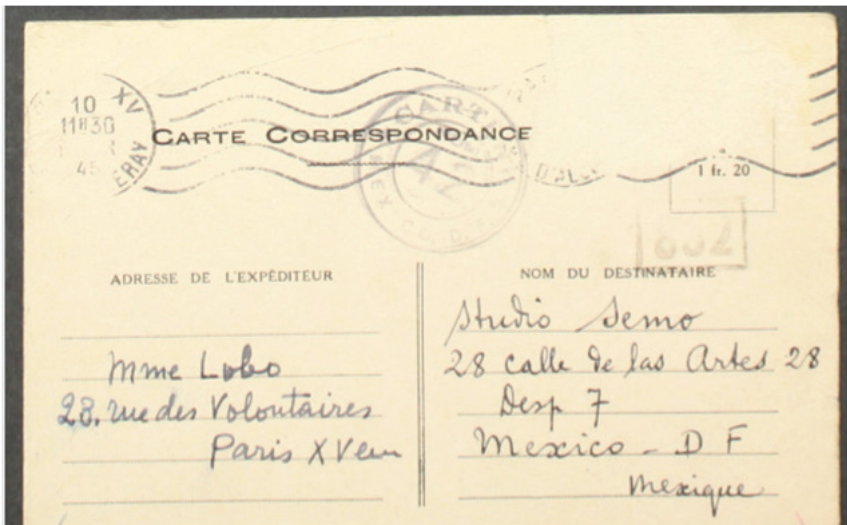 10 XV
11H30
45
ERAY
CARTE CORRESPONDANCE
CARTA
42
MEX. D.F.
D'AL
1 fr. 20
ADRESSE DE L'EXPÉDITEUR
Mme Lobo
23. rue des Volontaires
Paris XVem
NOM DU DESTINATAIRE
Studio Semo
28 calle de las Artes 28
Desp 7
Mexico - D F
Mexique